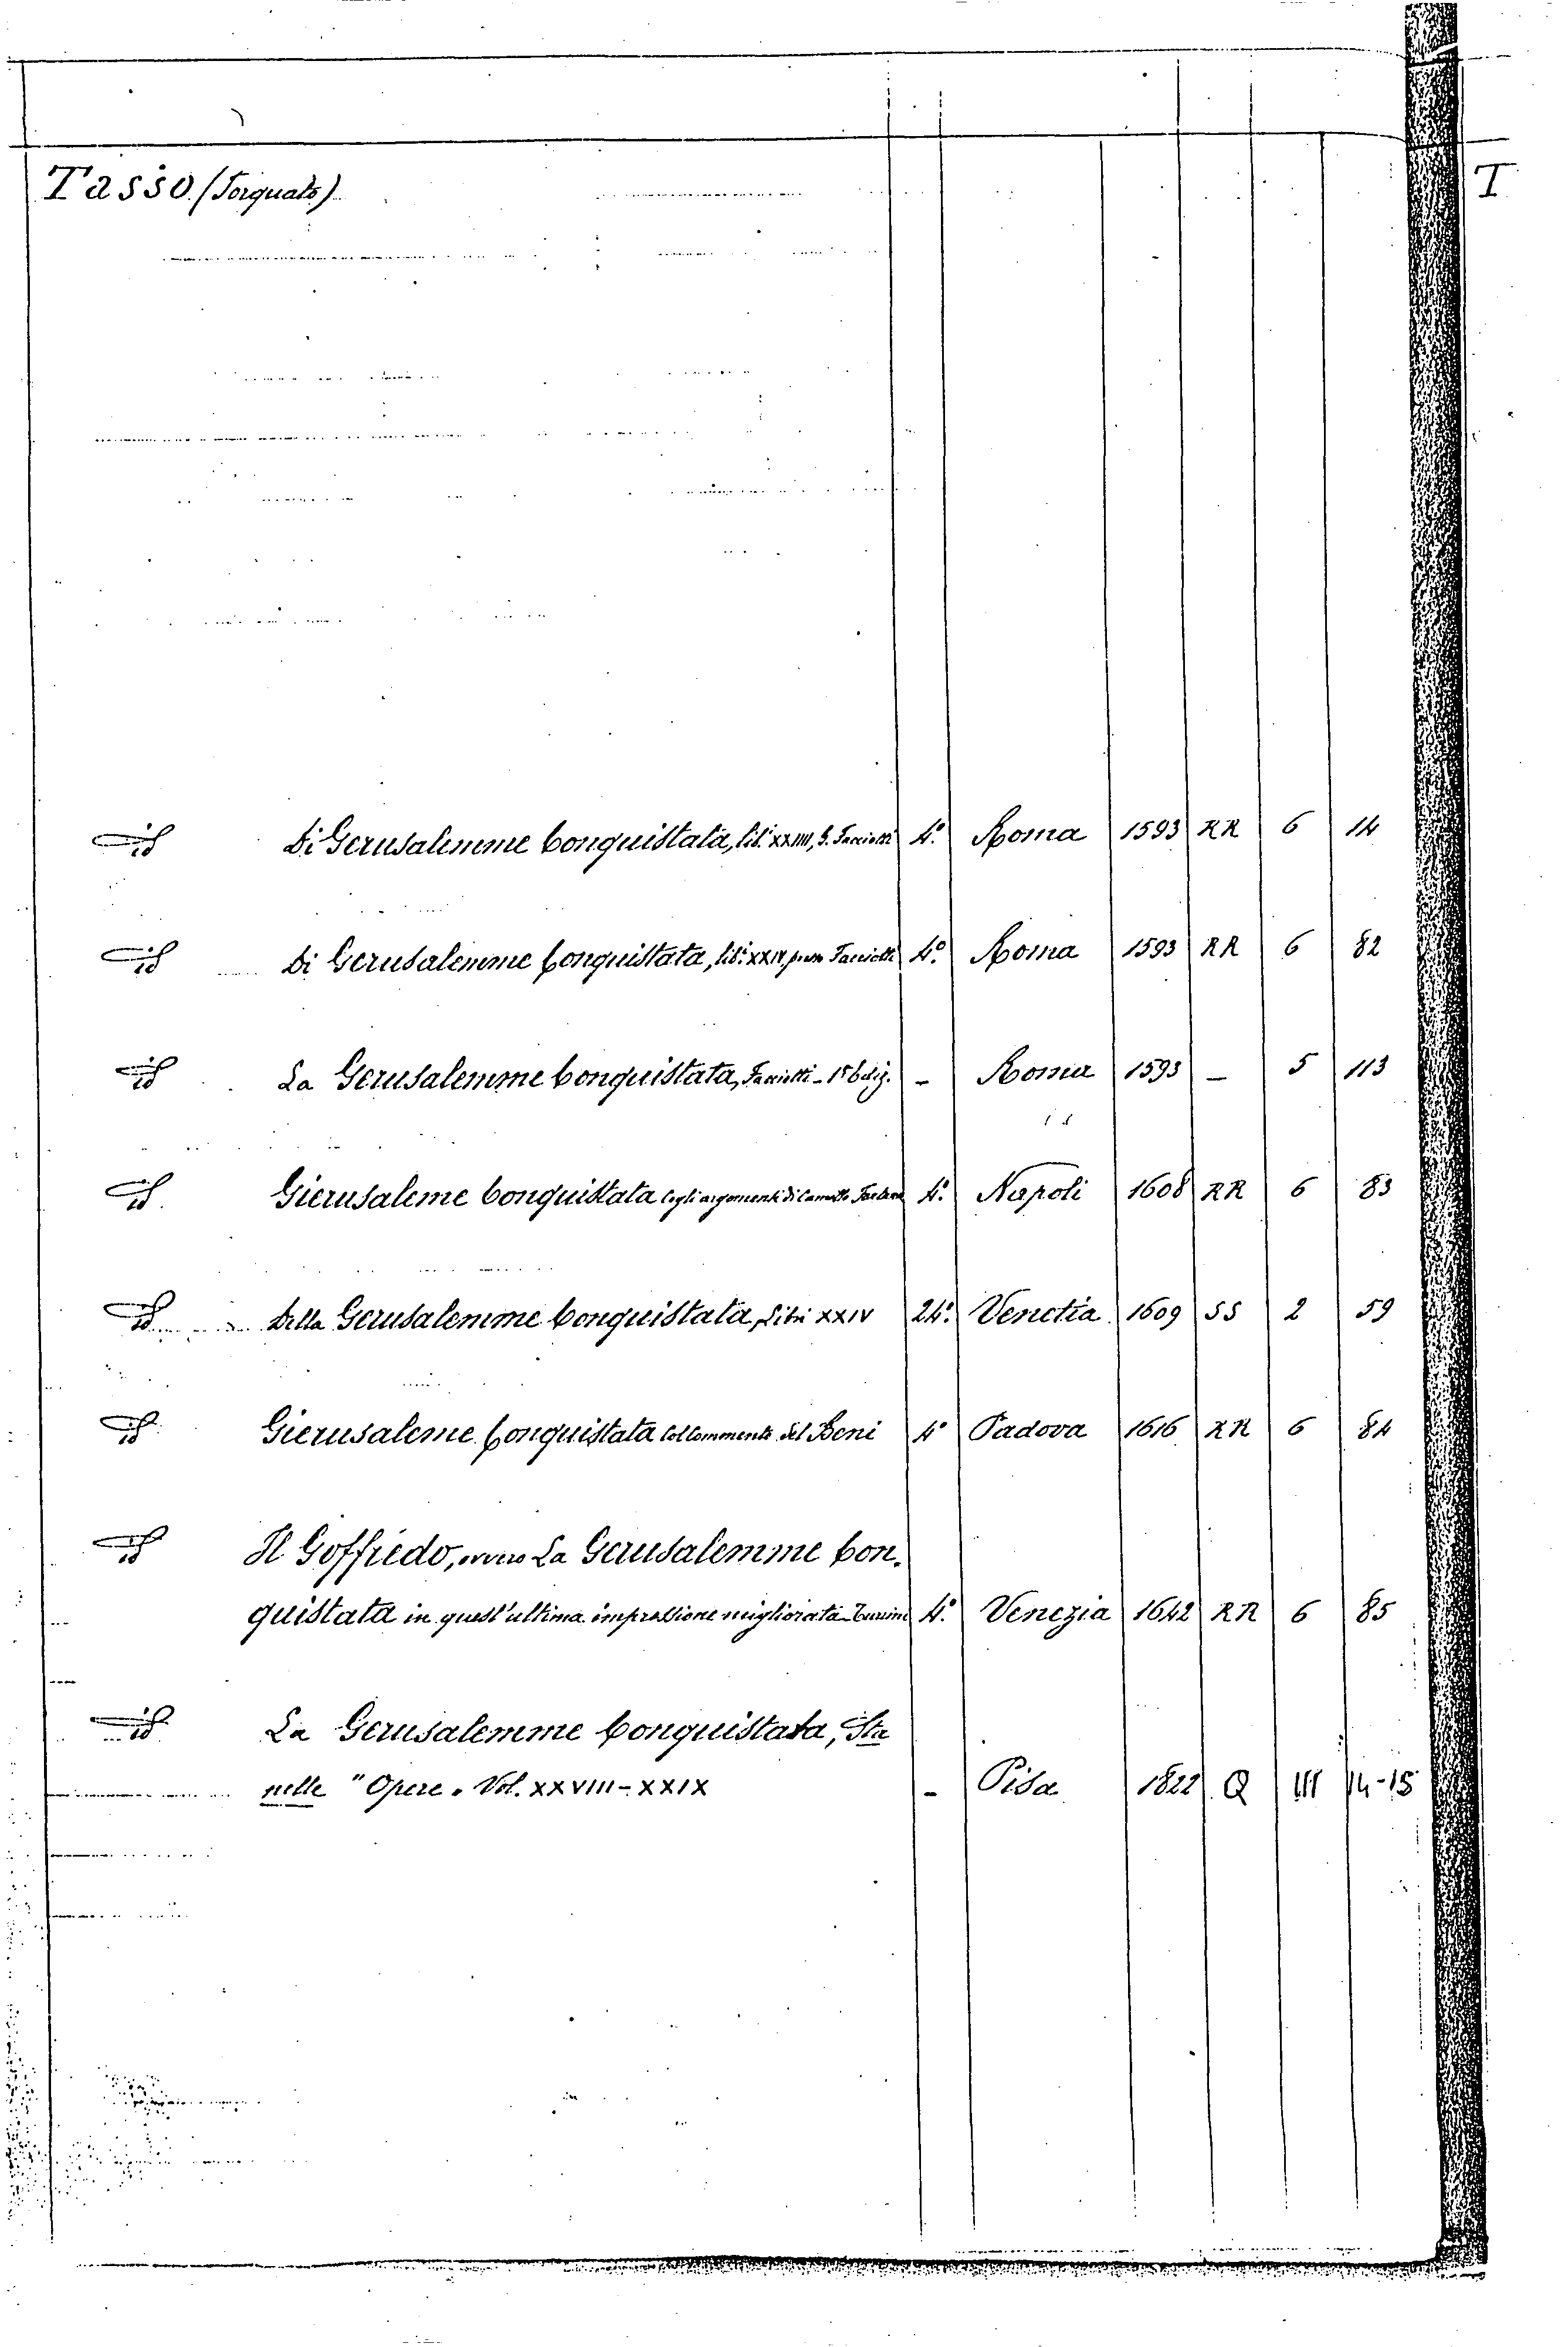 Tasso (Torquato)
T
id Di Gerusalemme Conquistata, lib. XXIIII, G. Facciotti 4.° Roma 1593 RR 6 14
id Di Gerusalemme Conquistata, lib. XXIV, Facciotti 4.° Roma 1593 RR 6 82
id La Gerusalemme Conquistata, Facciotti - - Roma 1593 - 5 113
id Gierusaleme Conquistata cogli argomenti di 4.° Napoli 1608 RR 6 83
id Della Gerusalemme Conquistata, Libri XXIV 24.° Venetia 1609 SS 2 59
id Gierusaleme Conquistata col commento del Beni 4° Padova 1616 RR 6 84
id Il Goffredo, ovvero La Gerusalemme Con-
quistata in quest'ultima impressione migliorata 4.° Venezia 1642 RR 6 85
id La Gerusalemme Conquistata, Sta
nelle "Opere" Vol. XXVIII-XXIX - Pisa 1822 Q III 14-15